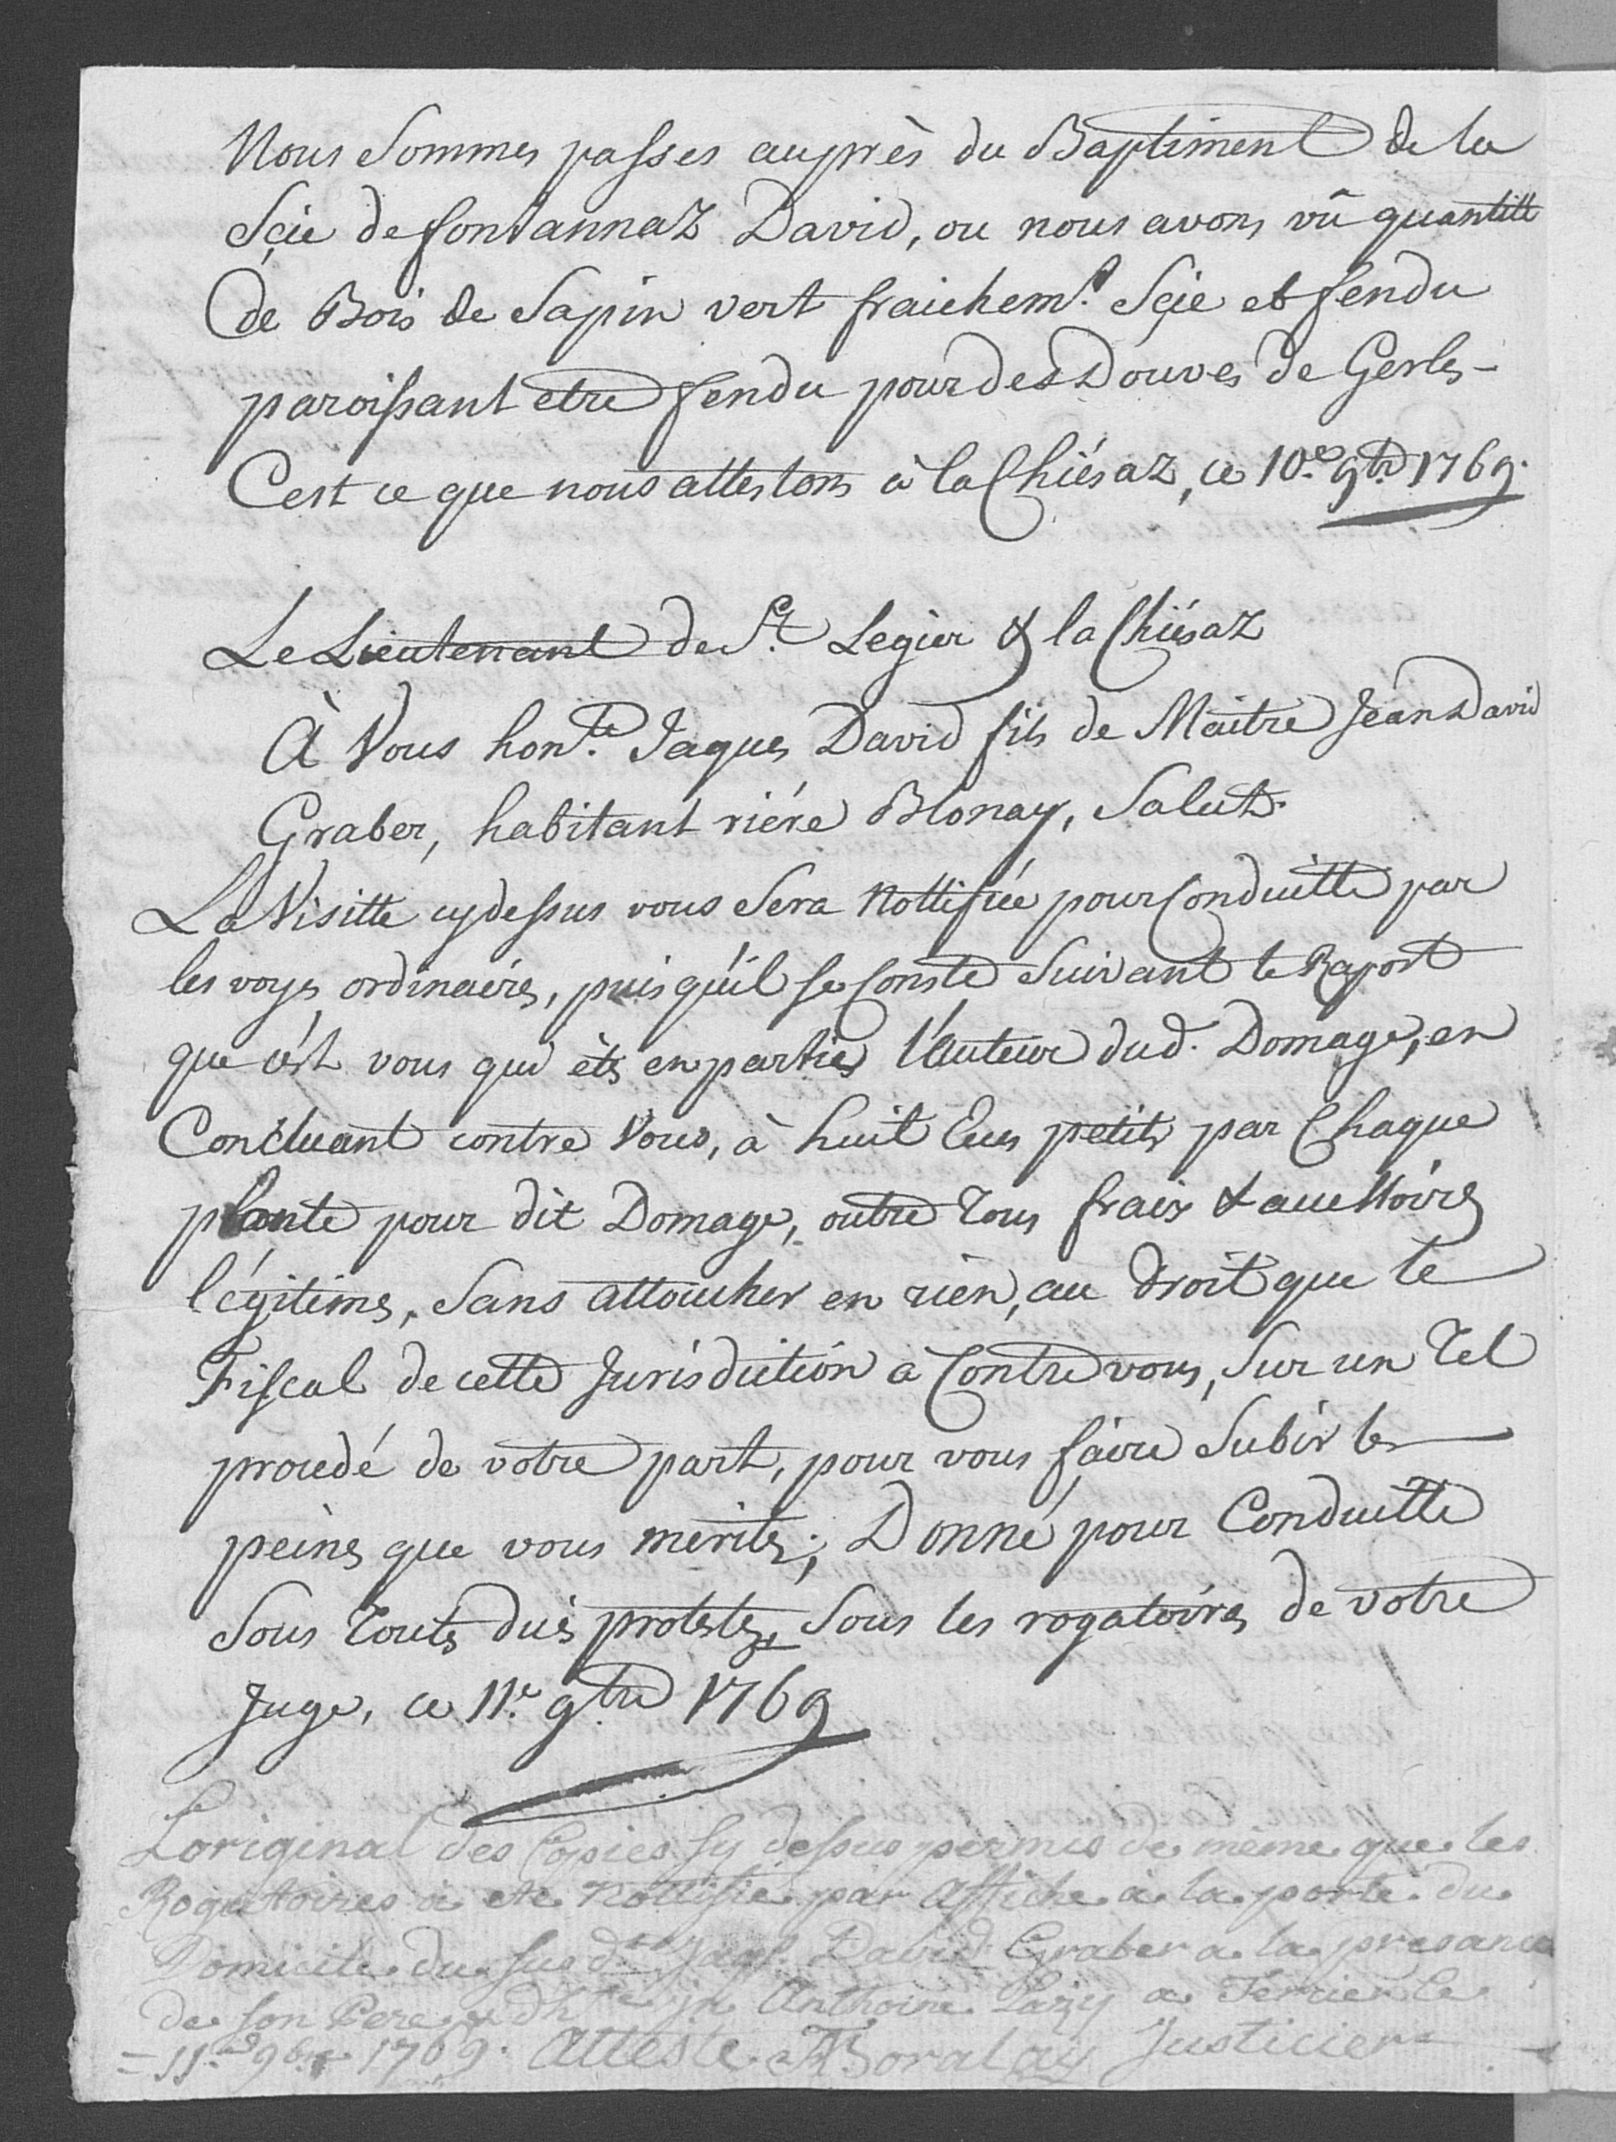 Nous Sommes passes auprès du Baptiment de la
Sçie de fontannaz David, ou nous avons vû quantité
de Bois de Sapin vert fraichem.t Sçie et fendu
paroissant etre fendu pour des Douves de Gerles -
C'est ce que nous attestons à la Chiésaz, ce 10.e 9.bre 1769.
Le Lieutenant de S.t Legier & la Chiésaz
À Vous hon.te Jaques David fils de Maitre Jean David
Graber, habitant riére Blonay, Salut.
La Visitte cy dessus vous Sera Nottifiée pour Conduitte par
les voyes ordinaires, puis qu'il se Conste Suivant le Raport
que c'est vous qui êtes en parties l'Auteur dud. Domage, en
Concluant contre Vous, à huit Ecus petits par Chaque
plante pour dit Domage, outre Tous frais & accessoires
légitimes, Sans attoucher en rien, au Droit que le
Fiscal de cette Jurisdiction a Contre vous, Sur un Tel
procedé de votre part, pour vous faire Subir les
peines que vous merites; Donné pour Conduitte
Sous Toutes dües protestes, Sous les rogatoires de votre
Juge, ce 11.e 9.bre 1769
L'original des Copies sy dessus permis de même que les
Rogatoires a ete Nottifie par Affiche a la porte du
Domicile du sus d.t Jaq.s David Graber a la presance
de son Pere & d'h.te Anthoine a Ferrier le
= 11.e 9bre 1769. Atteste Boralay Justicier